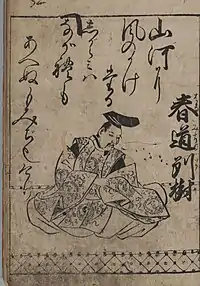 春道列樹
山河に
風のかけ
たる
しからみハ
なかれも
あへぬもみちなりけり